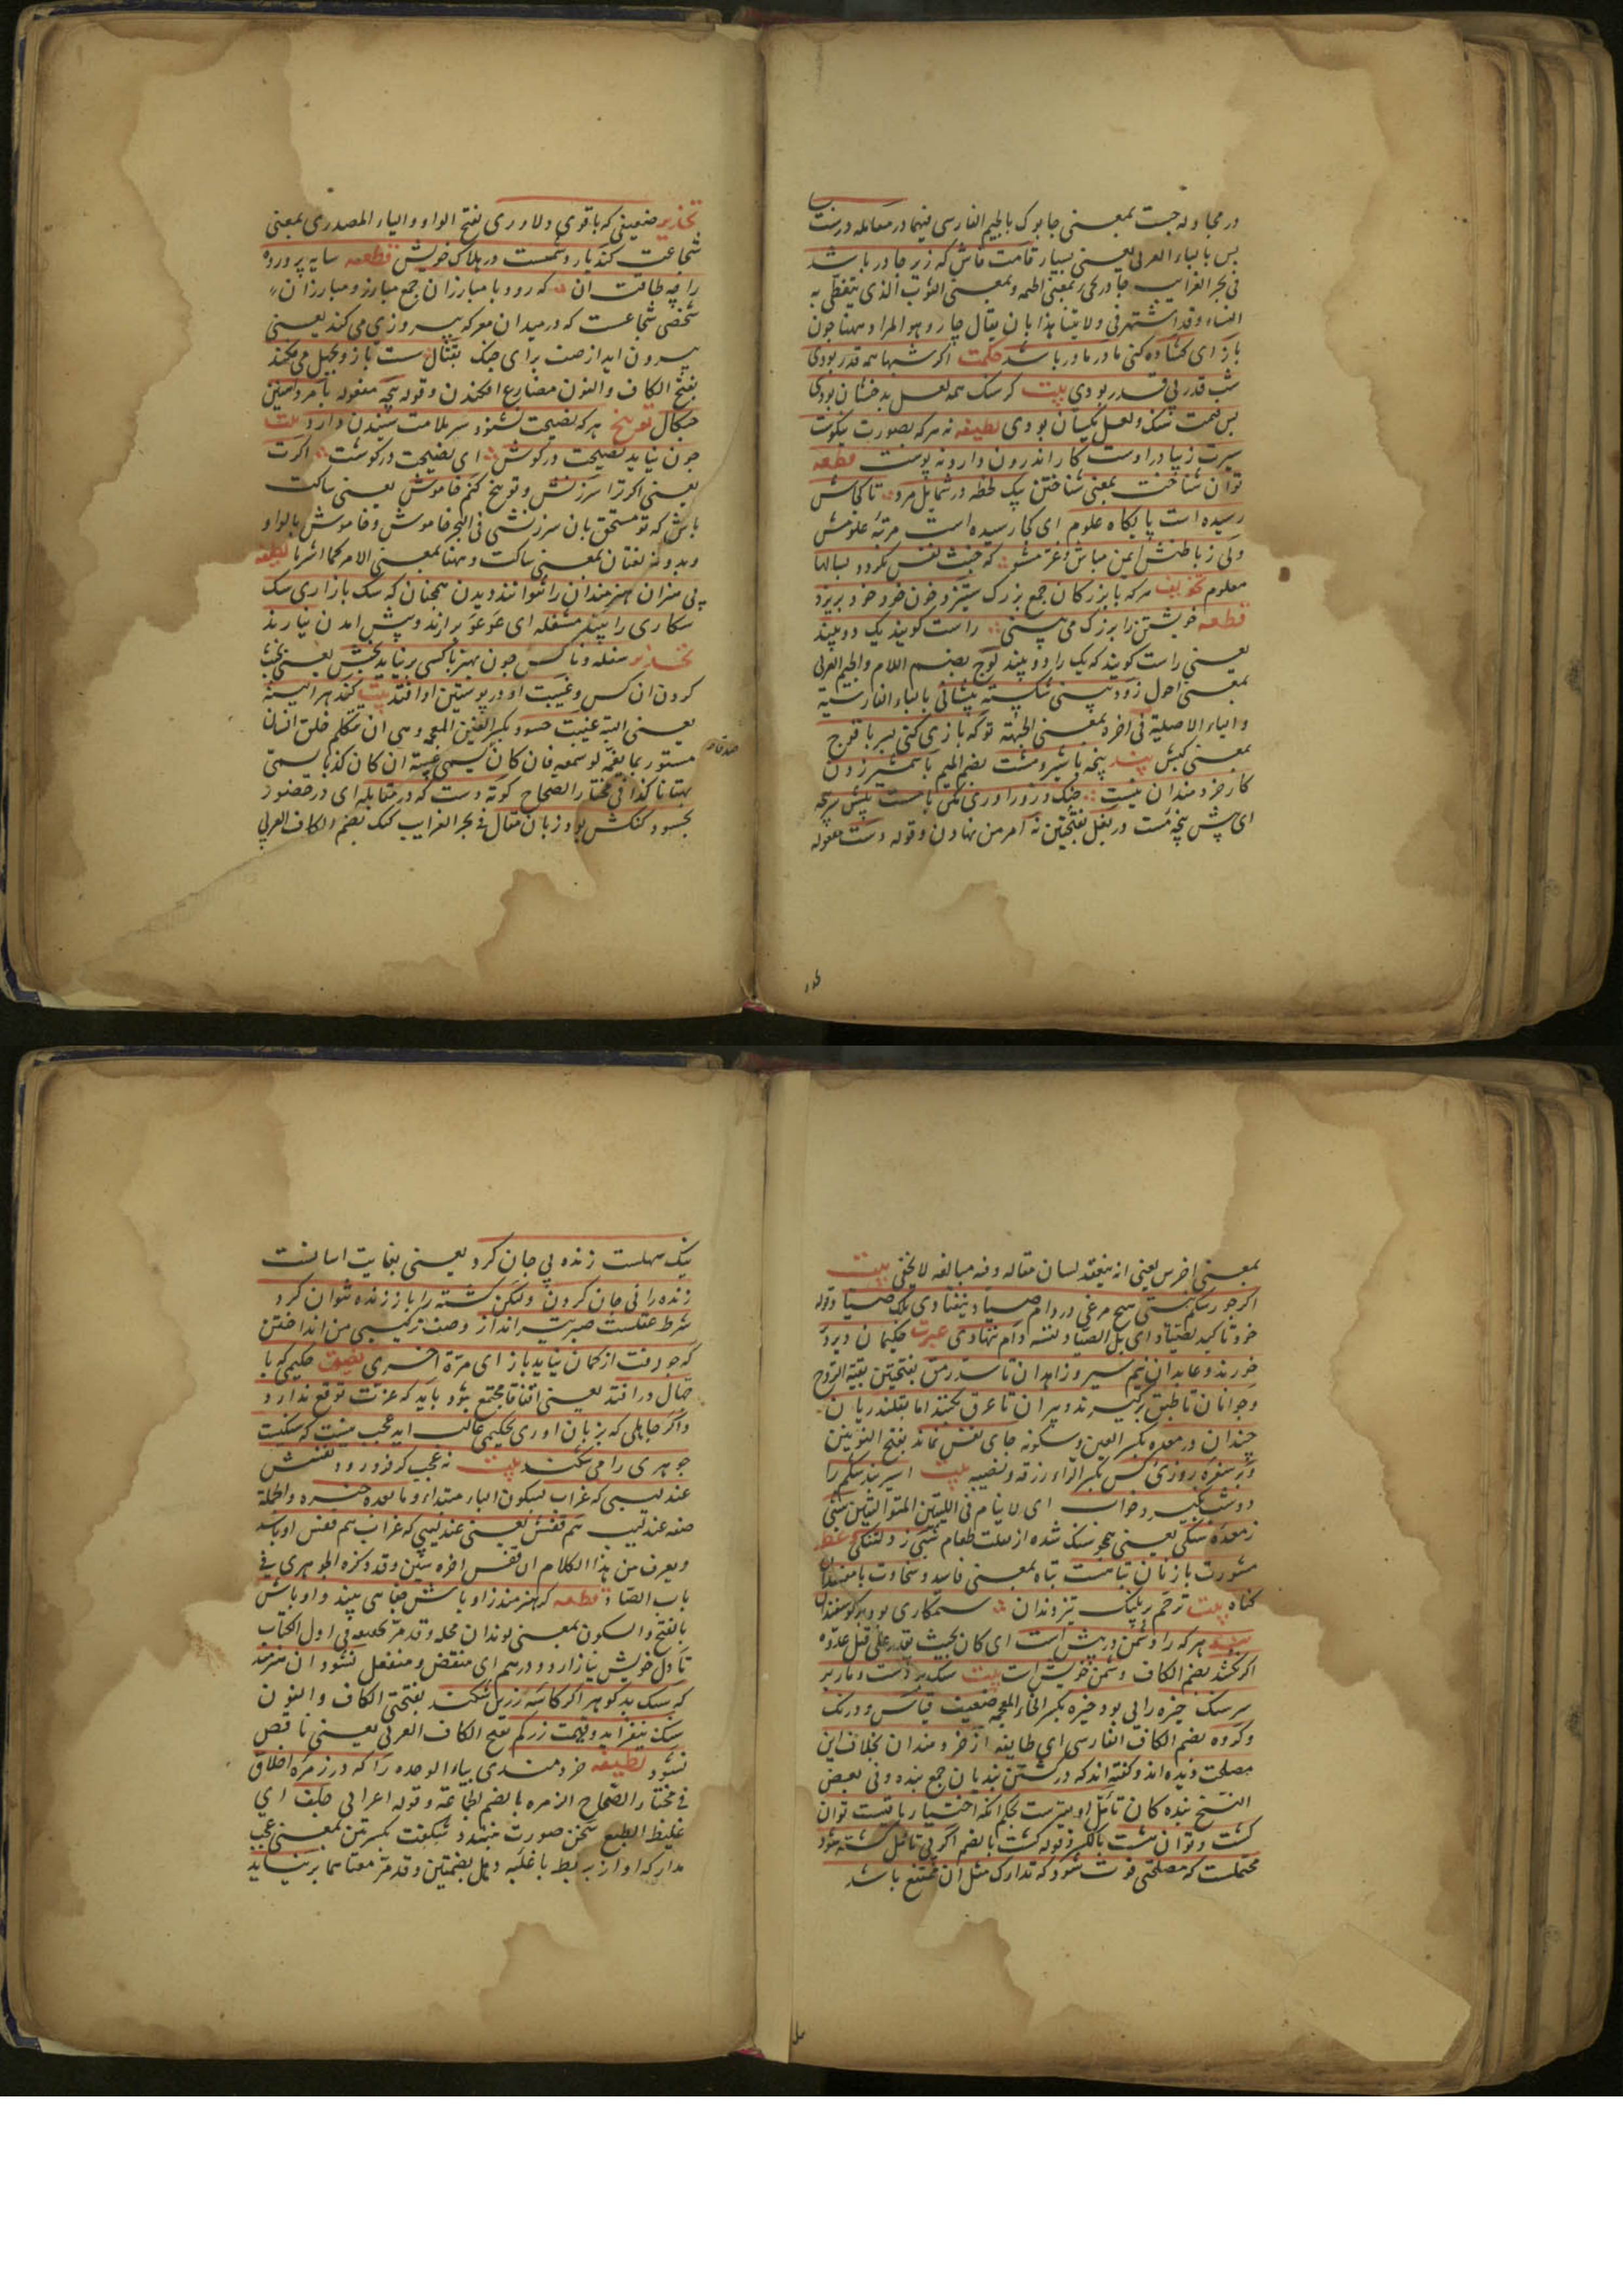 در مجادله جست بمعنی چابوک بالجیم الفارسی فیهما در معامله درست
بس بالباء العربی یعنی بسیار قامت خاش که زیر چادر باشد
فی بحر الغرایب چادر بمعنی الخیمه وبمعنی الثوب الذی یتغطی به
النساء وقد اشتهر فی ولایتنا هذا بان یقال چار وهو المراد ههنا چون
باز ای کشاده کنی مادر مادر باشد حکمت اکر شبها همه قدر بودی
شب قدر بی قدر بودی بیت کر سنک همه لعل بدخشان بودی
پس قیمت سنک ولعل یکسان بودی لطیفه نه هرکه بصورت نیکوست
سیرت زیبا در اوست کار اندرون دارد نه پوست قطعه
توان شناخت بمعنی شناختن بیک لحظه در شمایل مرد تا کجاش
رسیده است پایکاه علوم ای کجا رسیده است مرتبۀ علومش
ولی ز باطنش ایمن مباش وغره مشو که خبث نفس نکردد بسالها
معلوم تخویف هرکه با بزرکان جمع بزرک ستیزد خون خود بریزد
قطعه خویشتن را بزرک می بینی راست کویند یک دو بیند
یعنی راست کویند که یک را دو بیند لوچ بضم اللام والجیم العربی
بمعنی احول زود بینی شکسته پیشانی بالباء الفارسیة
والیاء الاصلیة فی اخره بمعنی الجبهة تو که بازی کنی بسر با قوچ
بمعنی کبش پند پنجه با شیر ومشت بضم المیم با شمشیر زدن
کار خردمندان نیست جنک وزور اوری مکن با مست پیش سرپنجه
ای پیش پنجه مست در بغل بفتحتین نه امر من نهادن وقوله دست مفعوله
تحذیر ضعیفی که با قوی دلاوری بفتح الواو والیاء المصدری بمعنی
شجاعت کند یار دشمنست در هلاک خویش قطعه سایه پرورده
را چه طاقت ان که رود با مبارزان جمع مبارز ومبارز ان
شخصی شجاعست که در میدان معرکه پیروزی می کند یعنی
بیرون اید از صف برای جنک بقتال سست بازو بجهل می فکند
بفتح الکاف والنون مضارع افکندن وقوله پنجه مفعوله با مرد اهنین
چنکال توبیخ هرکه نصیحت نشنود سر ملامت شنیدن دارد بیت
چون نیاید نصیحت در کوش ای نصیحت در کوشت اکرت
یعنی اکر ترا سرزنش وتوبیخ کنم خاموش یعنی ساکت
باش که تو مستحق بان سرزنشی فی البحر خاموش وخاموش بالواو
وبدونه لغتان بمعنی ساکت وههنا بمعنی الامر کما اشرنا لطیفه
بی هنران هنرمندان را نتوانند دیدن همچنان که سک بازاری سک
شکاری را بیند مشغله ای عوعو برارند وپیش امدن نیارند
تحذیر سفله وناکس چون بهنر با کسی برنیاید بخبثش یعنی بخبث
کردن ان کس وغیبت او در پوستین او افتد بیت کند هراینه
یعنی البته غیبت حسود بکسر الغین المعجمه وهی ان تتکلم خلق انسان
مستور بما یغمه لو سمعه فان کان صدقا یسمی غیبة وان کان کذبا یسمی
بهتانا کذا فی مختار الصحاح کوته دست که در مقابله ای در حضور
بحسود کنکش بود زبان مقال فی بحر الغرایب کنک بضم الکاف العربی
بمعنی اخرس یعنی انه ینعقد لسان مقاله وفیه مبالغه لا یخفی بیت
اکر جور شکم نیستی هیچ مرغی در دام صیاد نیفتادی بلکه صیاد وقوله
خود تاکید لصیاد ای بل الصیاد نفسه دام ننهادی عبرت حکیمان دیر دیر
خورند وعابدان نیم سیر وزاهدان تا سد رمق بفتحتین بقیة الروح
وجوانان تا طبق برکیرند وپیران تا عرق بکنند اما قلندریان
چندان در معده بکسر العین وسکونه جای نفس نماند بفتح النونین
وبر سفره روزی کس بکسر الراء رزقه ونصیبه بیت اسیر بند شکم را
دو شب نکیرد خواب ای لا ینام فی اللیلتین المتوالیتین شبی
ز معده سنکی یعنی همچو سنک شده از ثقلت طعام شبی ز دلتنکی وعظ
مشورت با زنان تباهست تباه بمعنی فاسد وسخاوت با مفسدان
کناه بیت ترحم بر پلنک تیز دندان ستمکاری بود بر کوسفندان
پند هر که را دشمن در پیش است ای کان بحیث یقدر علی قتل عدوه
اکر نکشد بضم الکاف دشمن خویش است بیت سنک بر دست ومار بر
سر سنک خیره رایی بود خیره بکسر الخاء المعجمه ضعیف قیاس ودرنک
وکروه بضم الکاف الفارسی ای طایفه از خردمندان بخلاف این
مصلحت دیده اند وکفته اند که در کشتن بندیان جمع بنده وفی بعض
النسخ بنده کان تامل اولیترست بحکم انکه اختیار باقیست توان
کشت وتوان هشت بالکسر وقوله کشت بالضم اکر بی تامل کشته شود
محتملست که مصلحتی فوت شود که تدارک مثل ان ممتنع باشد
نیک سهلست زنده بی جان کرد یعنی بغایت اسانست
زنده را بی جان کردن ولکن کشته را باز زنده نتوان کرد
شرط عقلست صبر تیر انداز وصف ترکیبی من انداختن
که چو رفت از کمان نیاید باز ای مرة اخری نصیحت حکیمی که با
جهال در افتد یعنی اتفاقا مجتمع بود باید که عزت توقع ندارد
واکر جاهلی که بزبان اوری بحکیمی غالب اید عجب نیست که سنکیست
جوهری را می شکند بیت نه عجب کر فرو رود نفسش
عندلیبی که غراب بسکون الباء مبتداء وما بعده خبره والجملة
صفة عندلیب هم قفسش یعنی عندلیبی که غراب هم قفس او باشد
ویعرف من هذا الکلام ان قفس اخره سین وقد ذکره الجوهری فی
باب الصاد قطعه کر هنرمند ز اوباش جفایی بیند واوباش
بالفتح والسکون بمعنی لوندان محله وقد مر تحقیقه فی اول الکتاب
تا دل خویش نیازارد ودرهم ای منقبض ومنفعل نشود ان هنرمند
که سنک بدکوهر اکر کاسه زرین شکند بفتحتی الکاف والنون
سنک نیفزاید وقیمت زر کم بفتح الکاف العربی یعنی ناقص
نشود لطیفه خردمندی بیاء الوحده را که در زمره اجلاف
فی مختار الصحاح الزمره بالضم الجماعة وقوله اعرابی جلف ای
غلیظ الطبع سخن صورت نبندد شکفت بکسرتین بمعنی عجب
مدار که اواز بربط با غلبه دهل بضمتین وقد مر معناهما برنیاید